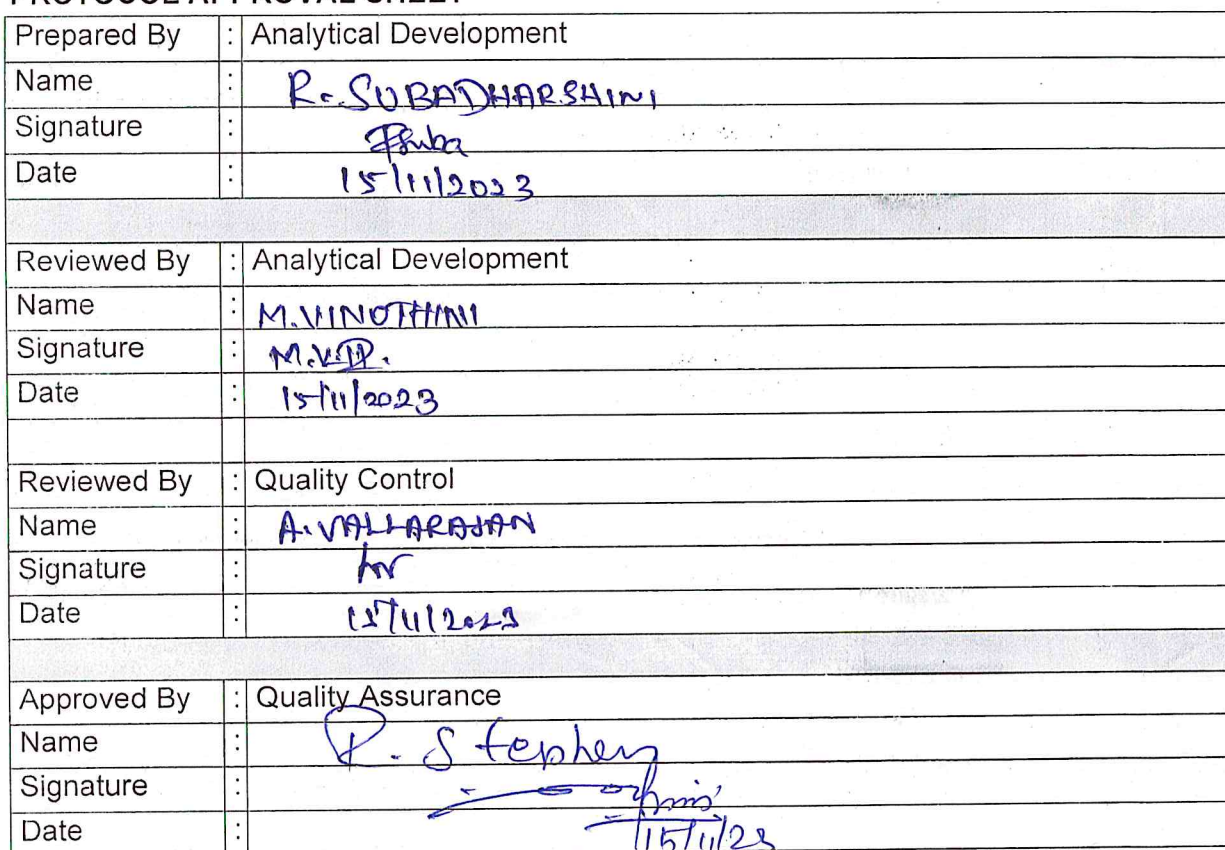 PROTOCOL APPROVAL SHEET
Prepared By : Analytical Development
Name : R. SUBADHARSHINI
Signature : RSuba
Date : 15/11/2023
Reviewed By : Analytical Development
Name : M. VINOTHINI
Signature : M.V
Date : 15/11/2023
Reviewed By : Quality Control
Name : A. VALLARAJAN
Signature :
Date : 15/11/2023
Approved By : Quality Assurance
Name : R. Stephen
Signature :
Date : 15/11/23